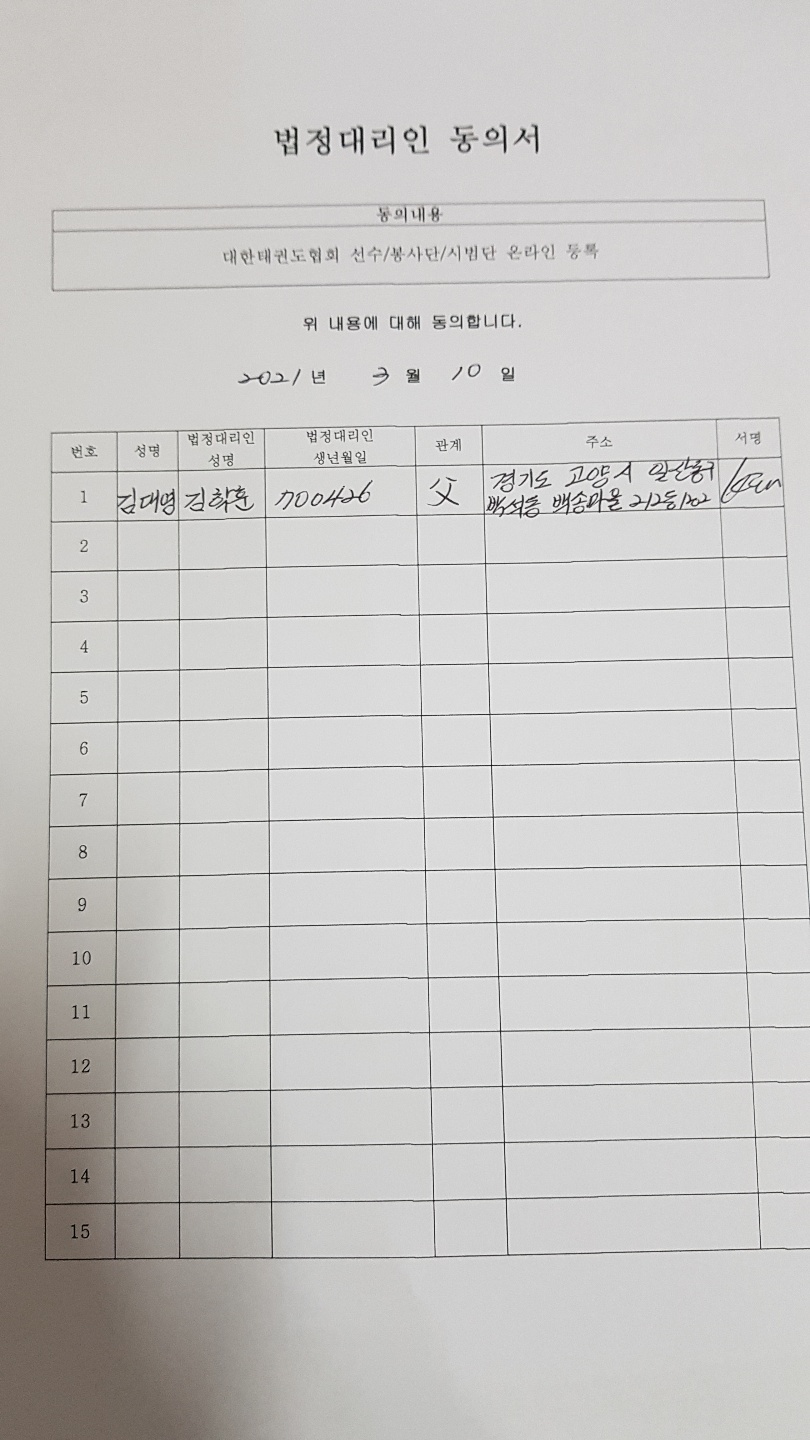 법정대리인 동의서
동의내용
대한태권도협회 선수/봉사단/시범단 온라인 등록
위 내용에 대해 동의합니다.
2021년 3월 10일
번호 성명 법정대리인 성명 법정대리인 생년월일 관계 주소 서명
1 김대영 김학훈 700426 父 경기도 고양시 일산동구
백석동 백송마을 212동1202
2
3
4
5
6
7
8
9
10
11
12
13
14
15